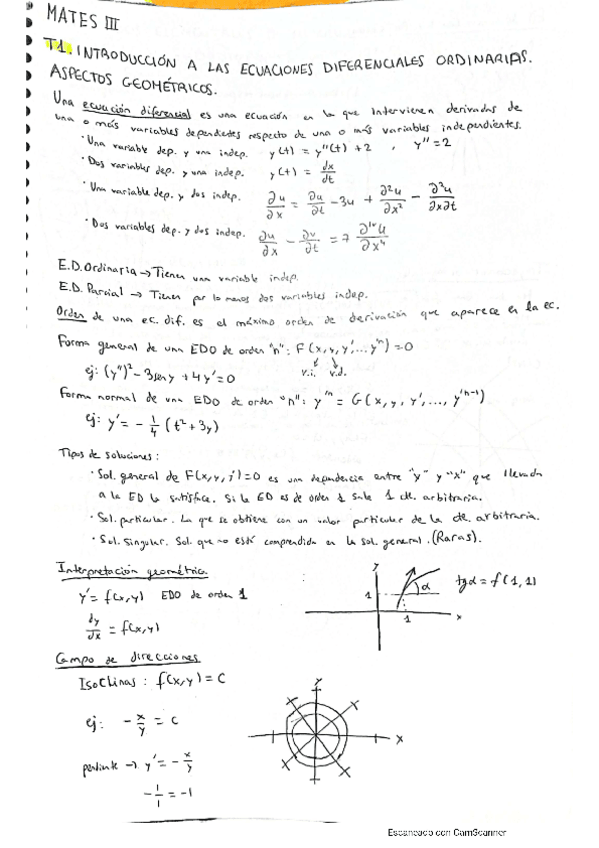 MATES III
T1. INTRODUCCIÓN A LAS ECUACIONES DIFERENCIALES ORDINARIAS.
ASPECTOS GEOMÉTRICOS.
Una ecuación diferencial es una ecuación en la que intervienen derivadas de
una o más variables dependietes respecto de una o más variables independientes.
· Una variable dep. y una indep. y(t) = y''(t) + 2 , y'' = 2
· Dos variables dep. y una indep. y(t) = dx/dt
· Una variable dep. y dos indep. ∂u/∂x = ∂u/∂t - 3u + ∂²u/∂x² - ∂²u/∂x∂t
· Dos variables dep. y dos indep. ∂u/∂x - ∂v/∂t = 7 ∂⁴u/∂x⁴
E.D. Ordinaria → Tienen una variable indep.
E.D. Parcial → Tienen por lo menos dos variables indep.
Orden de una ec. dif. es el máximo orden de derivación que aparece en la ec.
Forma general de una EDO de orden "n": F(x, y, y', ... yⁿ) = 0
v.i. v.d.
ej: (y'')² - 3sen y + 4y' = 0
Forma normal de una EDO de orden "n": y'ⁿ = G(x, y, y', ..., y'ⁿ⁻¹)
ej: y' = - 1/4 (t² + 3y)
Tipos de soluciones:
· Sol. general de F(x, y, y') = 0 es una dependencia entre "y" y "x" que llevada
a la ED la satisface. Si la ED es de orden 1 sale 1 cte. arbitraria.
· Sol. particular. La que se obtiene con un valor particular de la cte. arbitraria.
· Sol. Singular. Sol. que no esté comprendida en la sol. general. (Raras).
Interpretación geométrica
y' = f(x, y) EDO de orden 1
dy/dx = f(x, y)
y
1
α
1
x
tgα = f(1, 1)
Campo de direcciones
Isoclinas: f(x, y) = C
ej: - x/y = C
y
x
pendiente → y' = - x/y
- 1/1 = -1
Escaneado con CamScanner